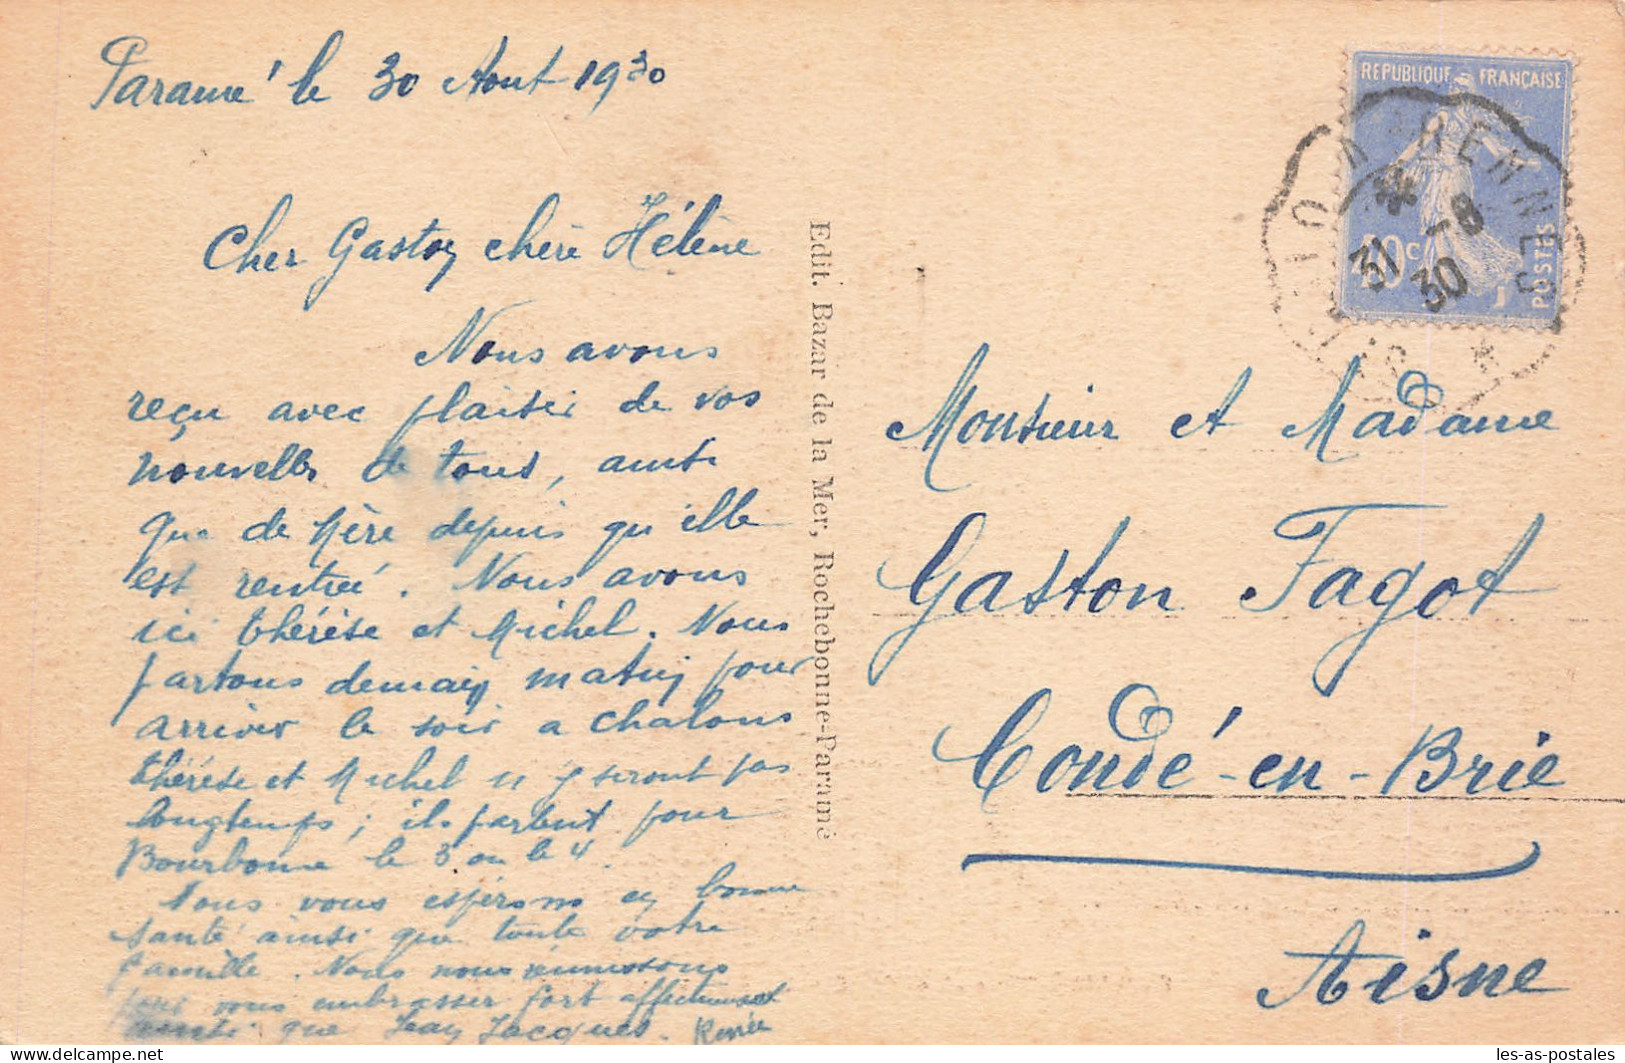 Paramé le 30 Aout 1930
Cher Gaston chère Hélène
Nous avons
reçu avec plaisir de vos
nouvelles de tous, ainsi
que de Mère depuis qu'elle
est rentrée. Nous avons
ici thérèse et Michel. Nous
partons demain matin pour
arriver le soir a Chalons
thérèse et Michel n'y seront pas
longtemps; ils partent pour
Bourbonne le 3 ou le 4.
Nous vous espérons en bonne
santé ainsi que toute votre
famille. Nous nous réunissons
pour vous embrasser fort affectueusement
ainsi que Jean Jacques. Renée
Edit. Bazar de la Mer, Rochebonne-Paramé
REPUBLIQUE FRANÇAISE
POSTES
A RENNES
31 -8
30
Monsieur et Madame
Gaston Fagot
Condé-en-Brie
Aisne
les-as-postales